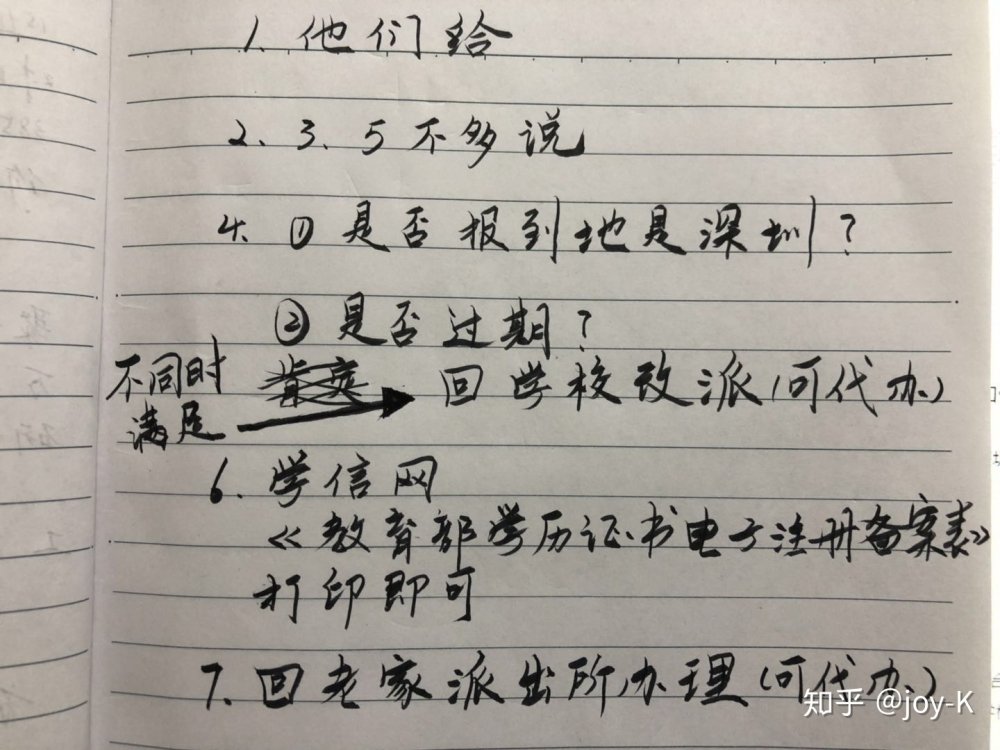 1. 他们给
2、3、5不多说
4、① 是否报到地是深圳？
② 是否过期？
不同时
满足
回学校改派（可代办）
6. 学信网
《教育部学历证书电子注册备案表》
打印即可
7. 回老家派出所办理（可代办）
知乎 @joy-K